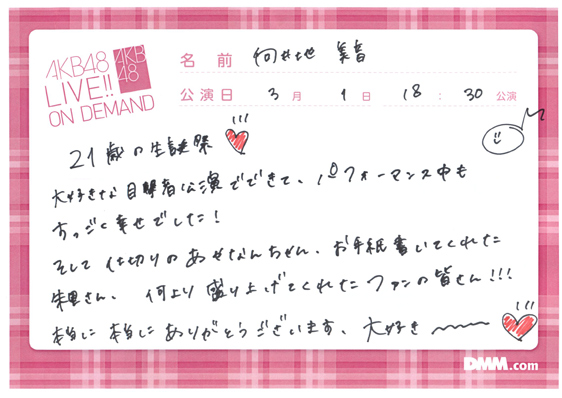 AKB48
LIVE!!
ON DEMAND
AKB
48
名前 向井地 美音
公演日 3月 1日 18:30公演
21歳の生誕祭
大好きな目撃者公演でできて、パフォーマンス中も
すっごく幸せでした!
そして仕切りのあせなんちゃん、お手紙書いてくれた
朱里さん、何より盛り上げてくれたファンの皆さん!!!
本当に本当にありがとうございます、大好き〜
DMM.com